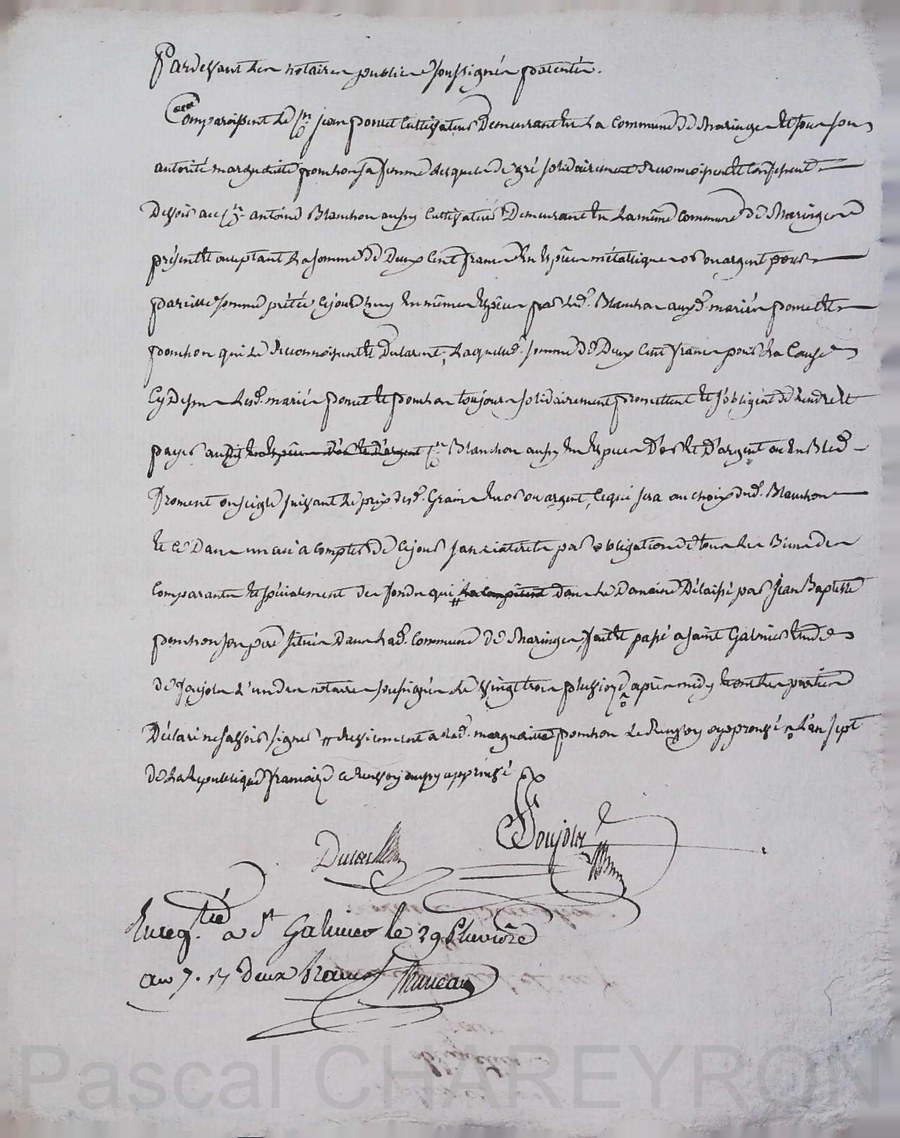 Pardevant les notaires publics soussignés patentés.
Comparoissent le Cn jean poncet Cultivateur Demeurant en la commune de Maringes et sous son
autorité margueritte ponchon sa femme lesquels de gré solidairement Reconnoissent et Confessent
Devoir au Cn antoine Blanchon aussy Cultivateur Demeurant en la même commune de Maringes
présent et acceptant la somme de Deux Cent francs En Espèces métallique or ou argent pour
pareille somme prêtée ce jourd'huy En mêmes Espèces par led. Blanchon auxd. mariés poncet et
ponchon qui le Reconnoissent et Déclarent, Laquelle somme de Deux Cent francs pour la Cause
Cy Dessus Lesd. mariés poncet et ponchon toujours solidairement promettent et s'obligent de Rendre et
payer audit en Espèces d'or et d'argent Cn Blanchon aussy En Espèces D'or et D'argent ou En Bled
froment ou seigle suivant le prix desd. Grains En or ou argent, ce qui sera au choix dud. Blanchon
Et ce Dans un an a compter de ce jour sans interets par obligation de tous les Biens des
Comparants Et spécialement des fonds qui la compètent dans le Domaine Délaissé par Jean Baptiste
ponchon son père situés Dans lad. commune de Maringes, fait et passé a saint Galmier Etude
de Soujolz L'un des notaires soussignés le vingt trois pluviose après midy les parties
Déclaré ne savoir signer adviennent a lad. margueritte ponchon Le Renvoy approuvé L'an sept
de la Republique française ce Renvoy aussy approuvé
Soujolz
Enregtré a St Galmier le 29 Pluviôse
an 7. deux francs
Pascal CHAREYRON